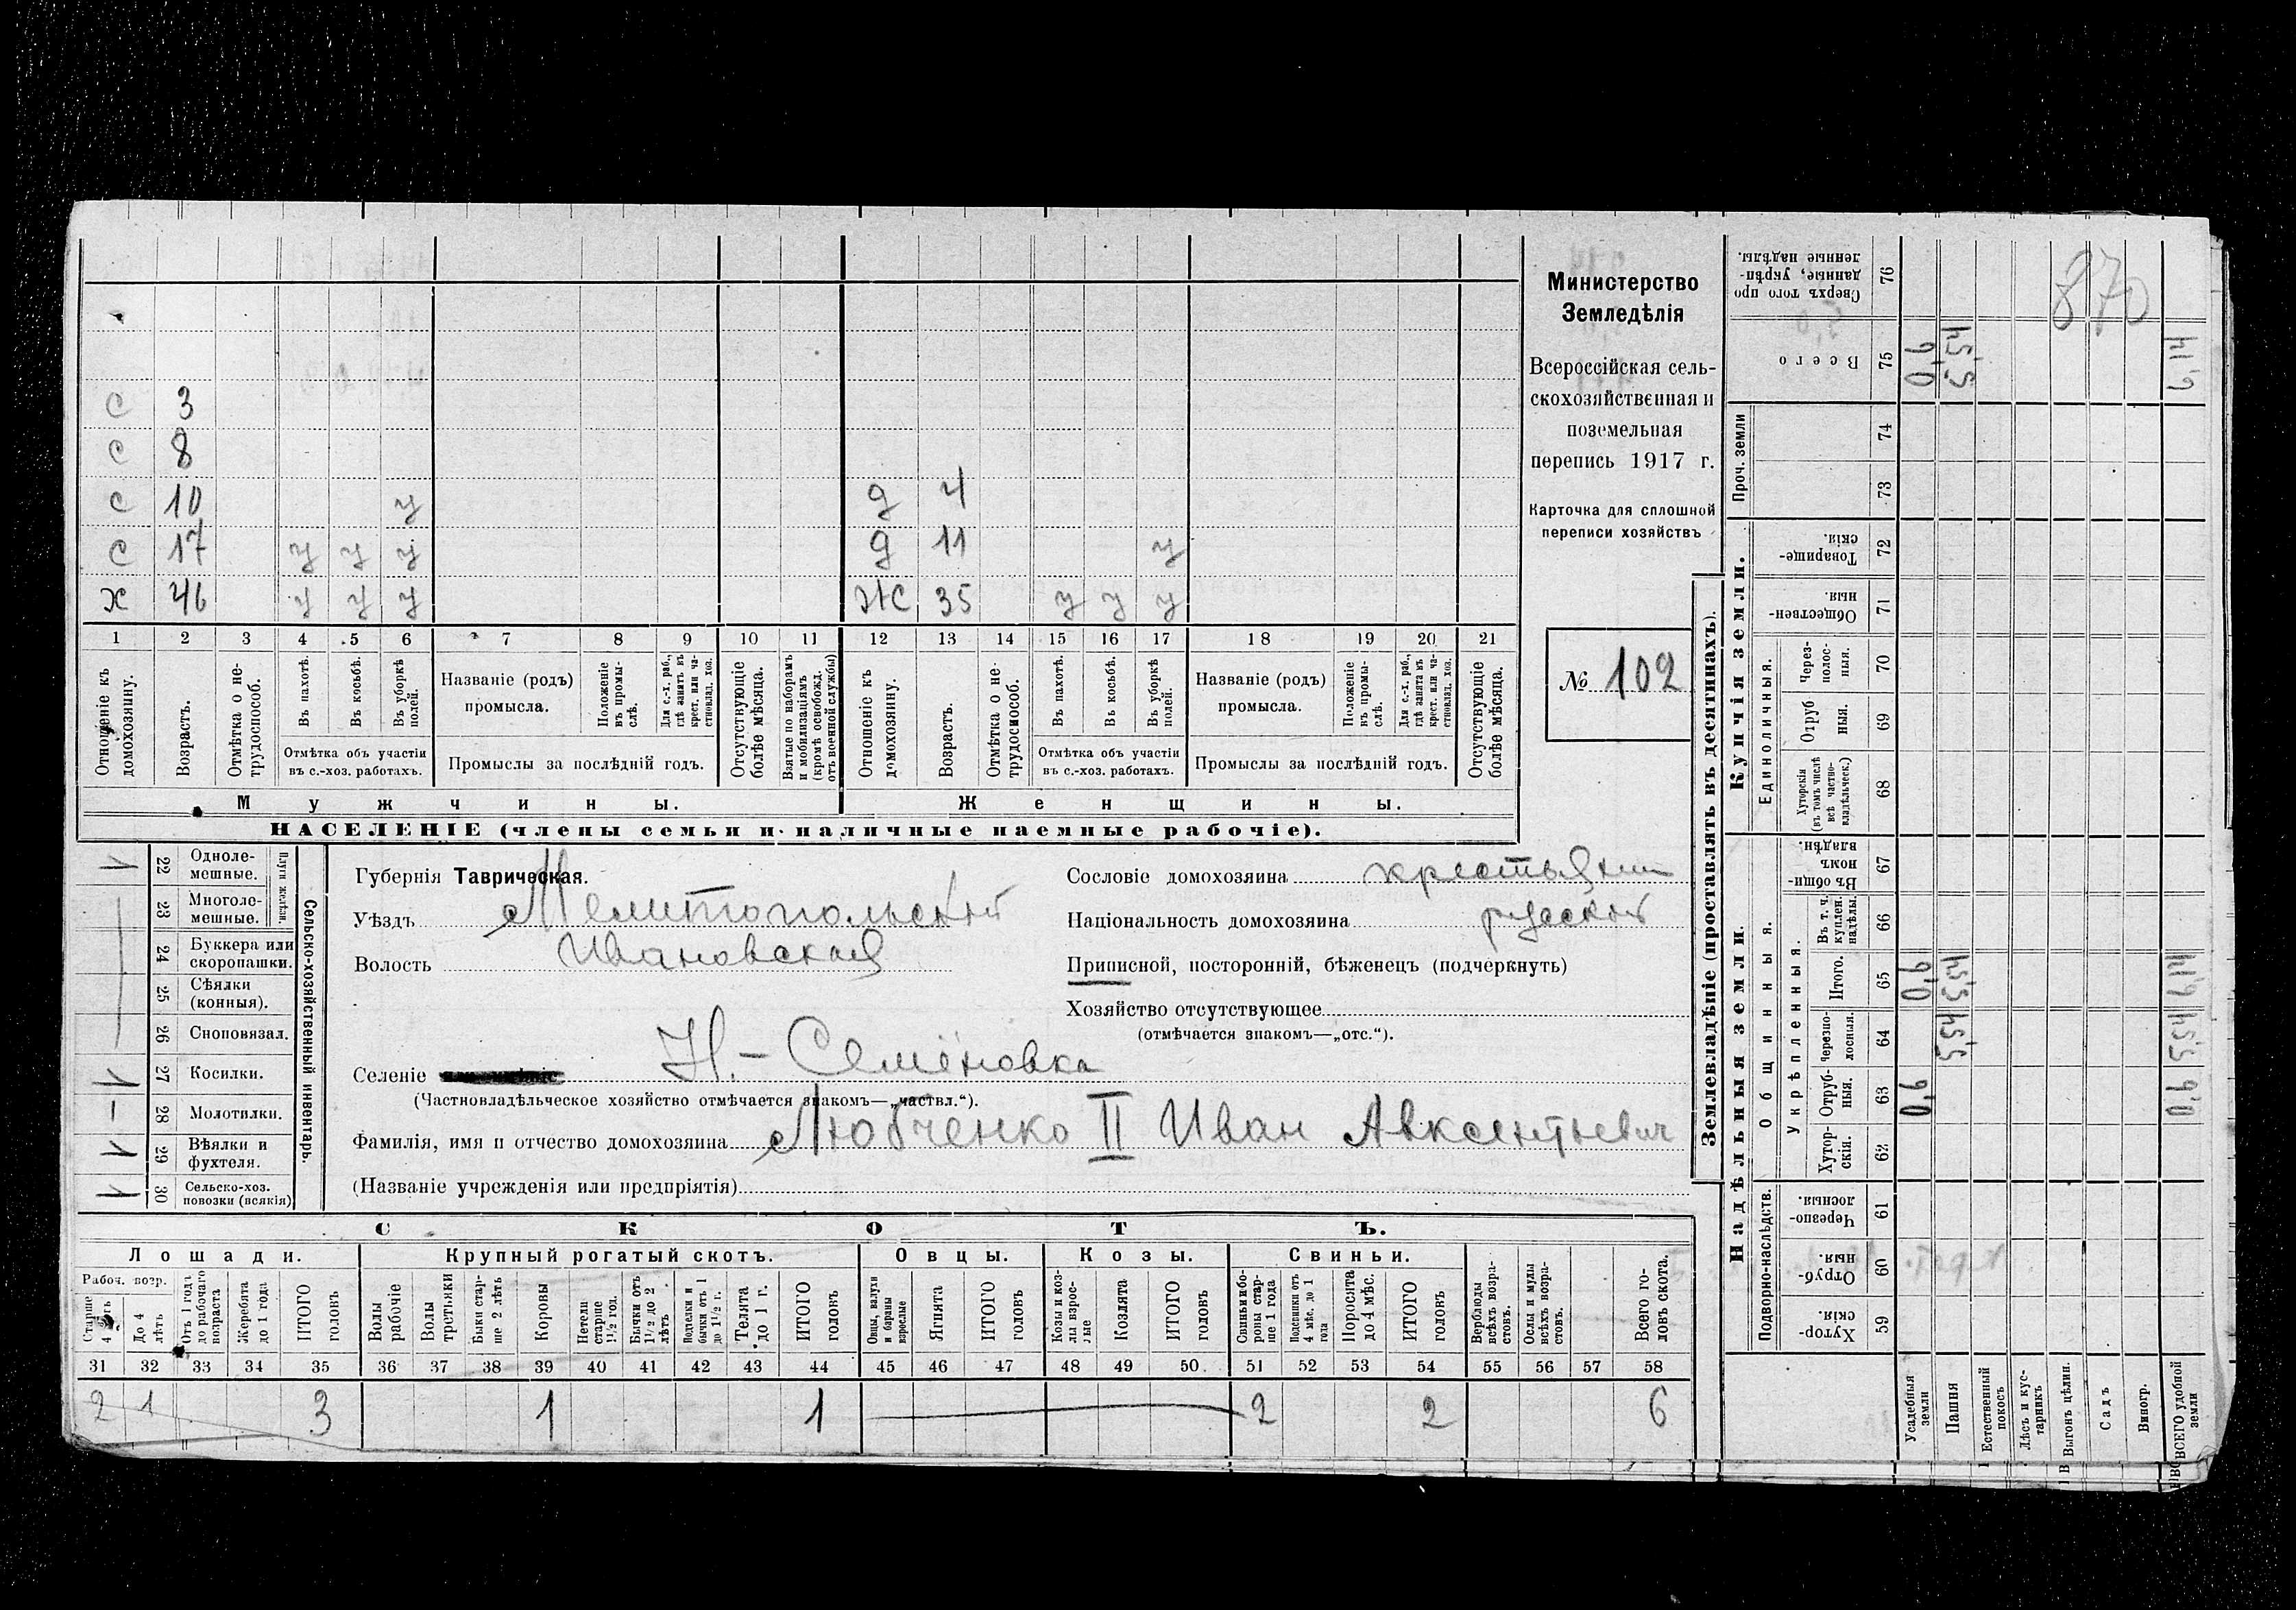 С 3
С 8
С 10 у д 4
С 17 у у у д 11 у
х 46 у у у ж 35 у у у
1 2 3 4 5 6 7 8 9 10 11 12 13 14 15 16 17 18 19 20 21
Отношеніе къ домохозяину.
Возрастъ.
Отмѣтка о нетрудоспособ.
Въ пахотѣ.
Въ косьбѣ.
Въ уборкѣ полей.
Отмѣтка объ участіи
въ с.-хоз. работахъ.
Названіе (родъ)
промысла.
Положеніе въ промыслѣ.
Для с.-х. раб., гдѣ занятъ въ крест. или частновлад. хоз.
Промыслы за послѣдній годъ.
Отсутствующіе болѣе мѣсяца.
Взятые по наборамъ и мобилизаціямъ (кромѣ освобожд. отъ военной службы)
Отношеніе къ домохозяину.
Возрастъ.
Отмѣтка о нетрудоспособ.
Въ пахотѣ.
Въ косьбѣ.
Въ уборкѣ полей.
Отмѣтка объ участіи
въ с.-хоз. работахъ.
Названіе (родъ)
промысла.
Положеніе въ промыслѣ.
Для с.-х. раб., гдѣ занята въ крест. или частновлад. хоз.
Промыслы за послѣдній годъ.
Отсутствующіе болѣе мѣсяца.
Мужчины. Женщины.
НАСЕЛЕНІЕ (члены семьи и наличные наемные рабочіе).
Министерство
Земледѣлія
Всероссійская сель-
скохозяйственная и
поземельная
перепись 1917 г.
Карточка для сплошной
переписи хозяйствъ
№ 102
1 22 Однолемешные.
23 Многолемешные.
Плуги желѣзн.
24 Буккера или скоропашки.
25 Сѣялки (конныя).
26 Сноповязал.
1 27 Косилки.
– 28 Молотилки.
1 29 Вѣялки и фухтеля.
1 30 Сельско-хоз. повозки (всякія)
Сельско-хозяйственный инвентарь.
Губернія Таврическая.
Уѣздъ Мелитопольский
Волость Ивановская
Сословіе домохозяина крестьянин
Національность домохозяина русский
Приписной, посторонній, бѣженецъ (подчеркнуть)
Хозяйство отсутствующее
(отмѣчается знакомъ—„отс.“).
Селеніе Н.- Семёновка
(Частновладѣльческое хозяйство отмѣчается знакомъ—„частвл.“).
Фамилія, имя и отчество домохозяина Любченко II Иван Авксентьевич
(Названіе учрежденія или предпріятія)
СКОТЪ.
Лошади. Крупный рогатый скотъ. Овцы. Козы. Свиньи.
Рабоч. возр.
Старше 4 лѣтъ
До 4 лѣтъ
Отъ 1 года до рабочаго возраста
Жеребята до 1 года
ИТОГО головъ
Волы рабочіе
Волы третьяки
Быки старше 2 лѣтъ
Коровы
Нетели старше 1½ год.
Бычки отъ 1½ до 2 лѣтъ
Подтелки и бычки отъ 1 до 1½ г.
Телята до 1 г.
ИТОГО головъ
Овцы, валухи и бараны взрослые
Ягнята
ИТОГО головъ
Козы и козлы взрослые
Козлята
ИТОГО головъ
Свиньи и боровы старше 1 года
Подсвинки отъ 4 мѣс. до 1 года
Поросята до 4 мѣс.
ИТОГО головъ
Верблюды всѣхъ возрастовъ.
Ослы и мулы всѣхъ возрастовъ.
Всего головъ скота.
31 32 33 34 35 36 37 38 39 40 41 42 43 44 45 46 47 48 49 50 51 52 53 54 55 56 57 58
2 1 3 1 1 2 2 6
Землевладѣніе (проставлять въ десятинахъ).
Купчія земли.
Надѣльныя земли.
Сверхъ того проданные, укрѣпленные надѣлы. 76
870
Всего 75 0,6 5,54 6,14
Проч. земли
74
73
Товарищескія. 72
Общественныя. 71
Единоличныя.
Черезполосныя. 70
Отрубныя. 69
Хуторскія (въ томъ числѣ всѣ частновладѣльческ.) 68
Общинныя.
Въ общинномъ владѣн. 67
Укрѣпленныя.
Въ т. ч. куплен. надѣлы. 66
Итого. 65 0,6 5,54 6,14
Черезполосныя. 64 5,54 5,54
Отрубныя. 63 0,6 0,6
Хуторскія. 62
Подворно-наслѣдств.
Черезполосныя. 61
Отрубныя. 60
Хуторскія. 59
Усадебныя земли
Пашня
Естественный покосъ
Лѣсъ и кустарникъ
Выгонъ цѣлин.
Садъ
Виногр.
ВСЕГО удобной земли